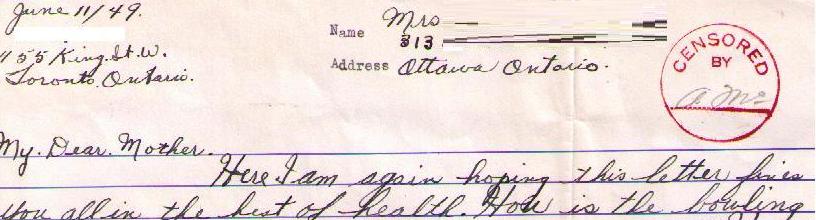 June 11/49.
Name Mrs
313
455 King. St. W.
Address Ottawa Ontario.
Toronto, Ontario.
CENSORED
BY
a. Mc
My. Dear. Mother.
Here I am again hoping this letter finds
you all in the best of health. How is the bowling